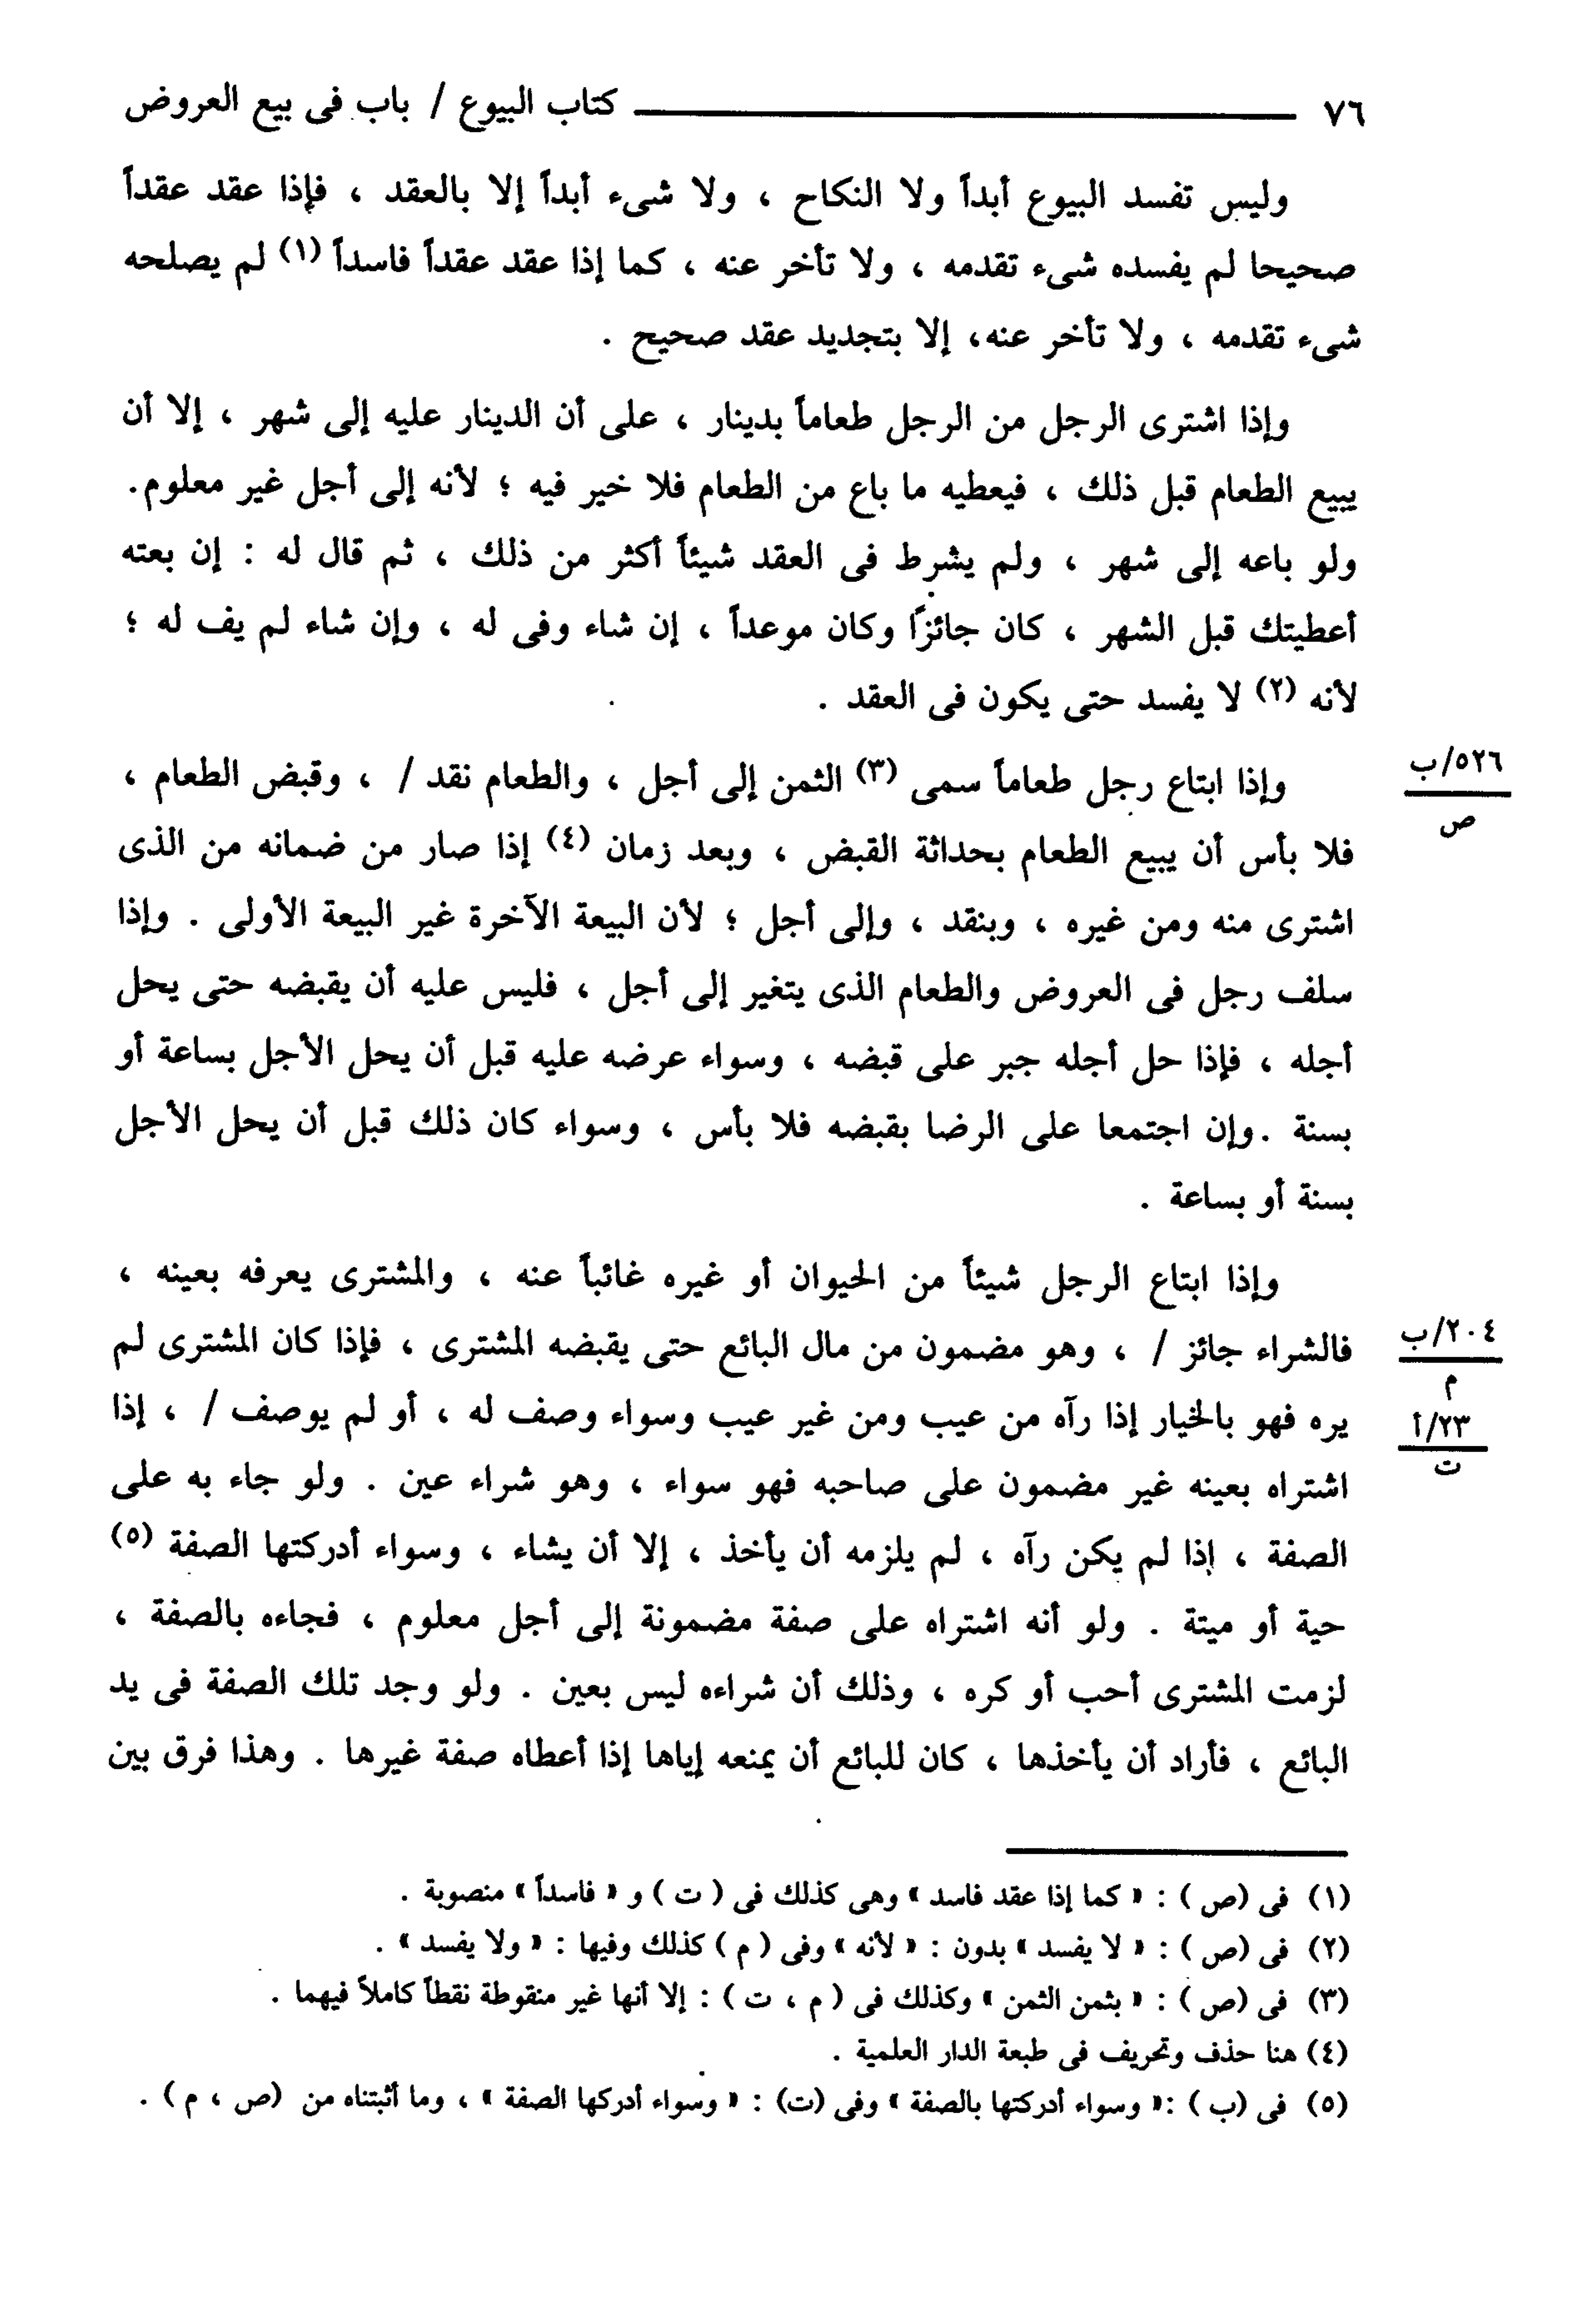 ٧٦ كتاب البيوع / باب فى بيع العروض
وليس تفسد البيوع أبداً ولا النكاح ، ولا شىء أبداً إلا بالعقد ، فإذا عقد عقداً
صحيحا لم يفسده شىء تقدمه ، ولا تأخر عنه ، كما إذا عقد عقداً فاسداً (١) لم يصلحه
شىء تقدمه ، ولا تأخر عنه، إلا بتجديد عقد صحيح .
وإذا اشترى الرجل من الرجل طعاماً بدينار ، على أن الدينار عليه إلى شهر ، إلا أن
يبيع الطعام قبل ذلك ، فيعطيه ما باع من الطعام فلا خير فيه ؛ لأنه إلى أجل غير معلوم.
ولو باعه إلى شهر ، ولم يشرط فى العقد شيئاً أكثر من ذلك ، ثم قال له : إن بعته
أعطيتك قبل الشهر ، كان جائزاً وكان موعداً ، إن شاء وفى له ، وإن شاء لم يف له ؛
لأنه (٢) لا يفسد حتى يكون فى العقد .
وإذا ابتاع رجل طعاماً سمى (٣) الثمن إلى أجل ، والطعام نقد / ، وقبض الطعام ،
٥٢٦/ب
ص
فلا بأس أن يبيع الطعام بحداثة القبض ، وبعد زمان (٤) إذا صار من ضمانه من الذى
اشترى منه ومن غيره ، وبنقد ، وإلى أجل ؛ لأن البيعة الآخرة غير البيعة الأولى . وإذا
سلف رجل فى العروض والطعام الذى يتغير إلى أجل ، فليس عليه أن يقبضه حتى يحل
أجله ، فإذا حل أجله جبر على قبضه ، وسواء عرضه عليه قبل أن يحل الأجل بساعة أو
بسنة .وإن اجتمعا على الرضا بقبضه فلا بأس ، وسواء كان ذلك قبل أن يحل الأجل
بسنة أو بساعة .
وإذا ابتاع الرجل شيئاً من الحيوان أو غيره غائباً عنه ، والمشترى يعرفه بعينه ،
فالشراء جائز / ، وهو مضمون من مال البائع حتى يقبضه المشترى ، فإذا كان المشترى لم
٢٠٤/ب
م
يره فهو بالخيار إذا رآه من عيب ومن غير عيب وسواء وصف له ، أو لم يوصف / ، إذا
٢٣/أ
ت
اشتراه بعينه غير مضمون على صاحبه فهو سواء ، وهو شراء عين . ولو جاء به على
الصفة ، إذا لم يكن رآه ، لم يلزمه أن يأخذ ، إلا أن يشاء ، وسواء أدركتها الصفة (٥)
حية أو ميتة . ولو أنه اشتراه على صفة مضمونة إلى أجل معلوم ، فجاءه بالصفة ،
لزمت المشترى أحب أو كره ، وذلك أن شراءه ليس بعين . ولو وجد تلك الصفة فى يد
البائع ، فأراد أن يأخذها ، كان للبائع أن يمنعه إياها إذا أعطاه صفة غيرها . وهذا فرق بين
(١) فى (ص) : « كما إذا عقد فاسد » وهى كذلك فى ( ت ) و « فاسداً » منصوبة .
(٢) فى (ص) : « لا يفسد » بدون : « لأنه » وفى ( م ) كذلك وفيها : « ولا يفسد » .
(٣) فى (ص) : « بثمن الثمن » وكذلك فى ( م ، ت ) : إلا أنها غير منقوطة نقطاً كاملاً فيهما .
(٤) هنا حذف وتحريف فى طبعة الدار العلمية .
(٥) فى (ب) :« وسواء أدركتها بالصفة » وفى (ت) : « وسواء أدركها الصفة » ، وما أثبتناه من (ص ، م) .